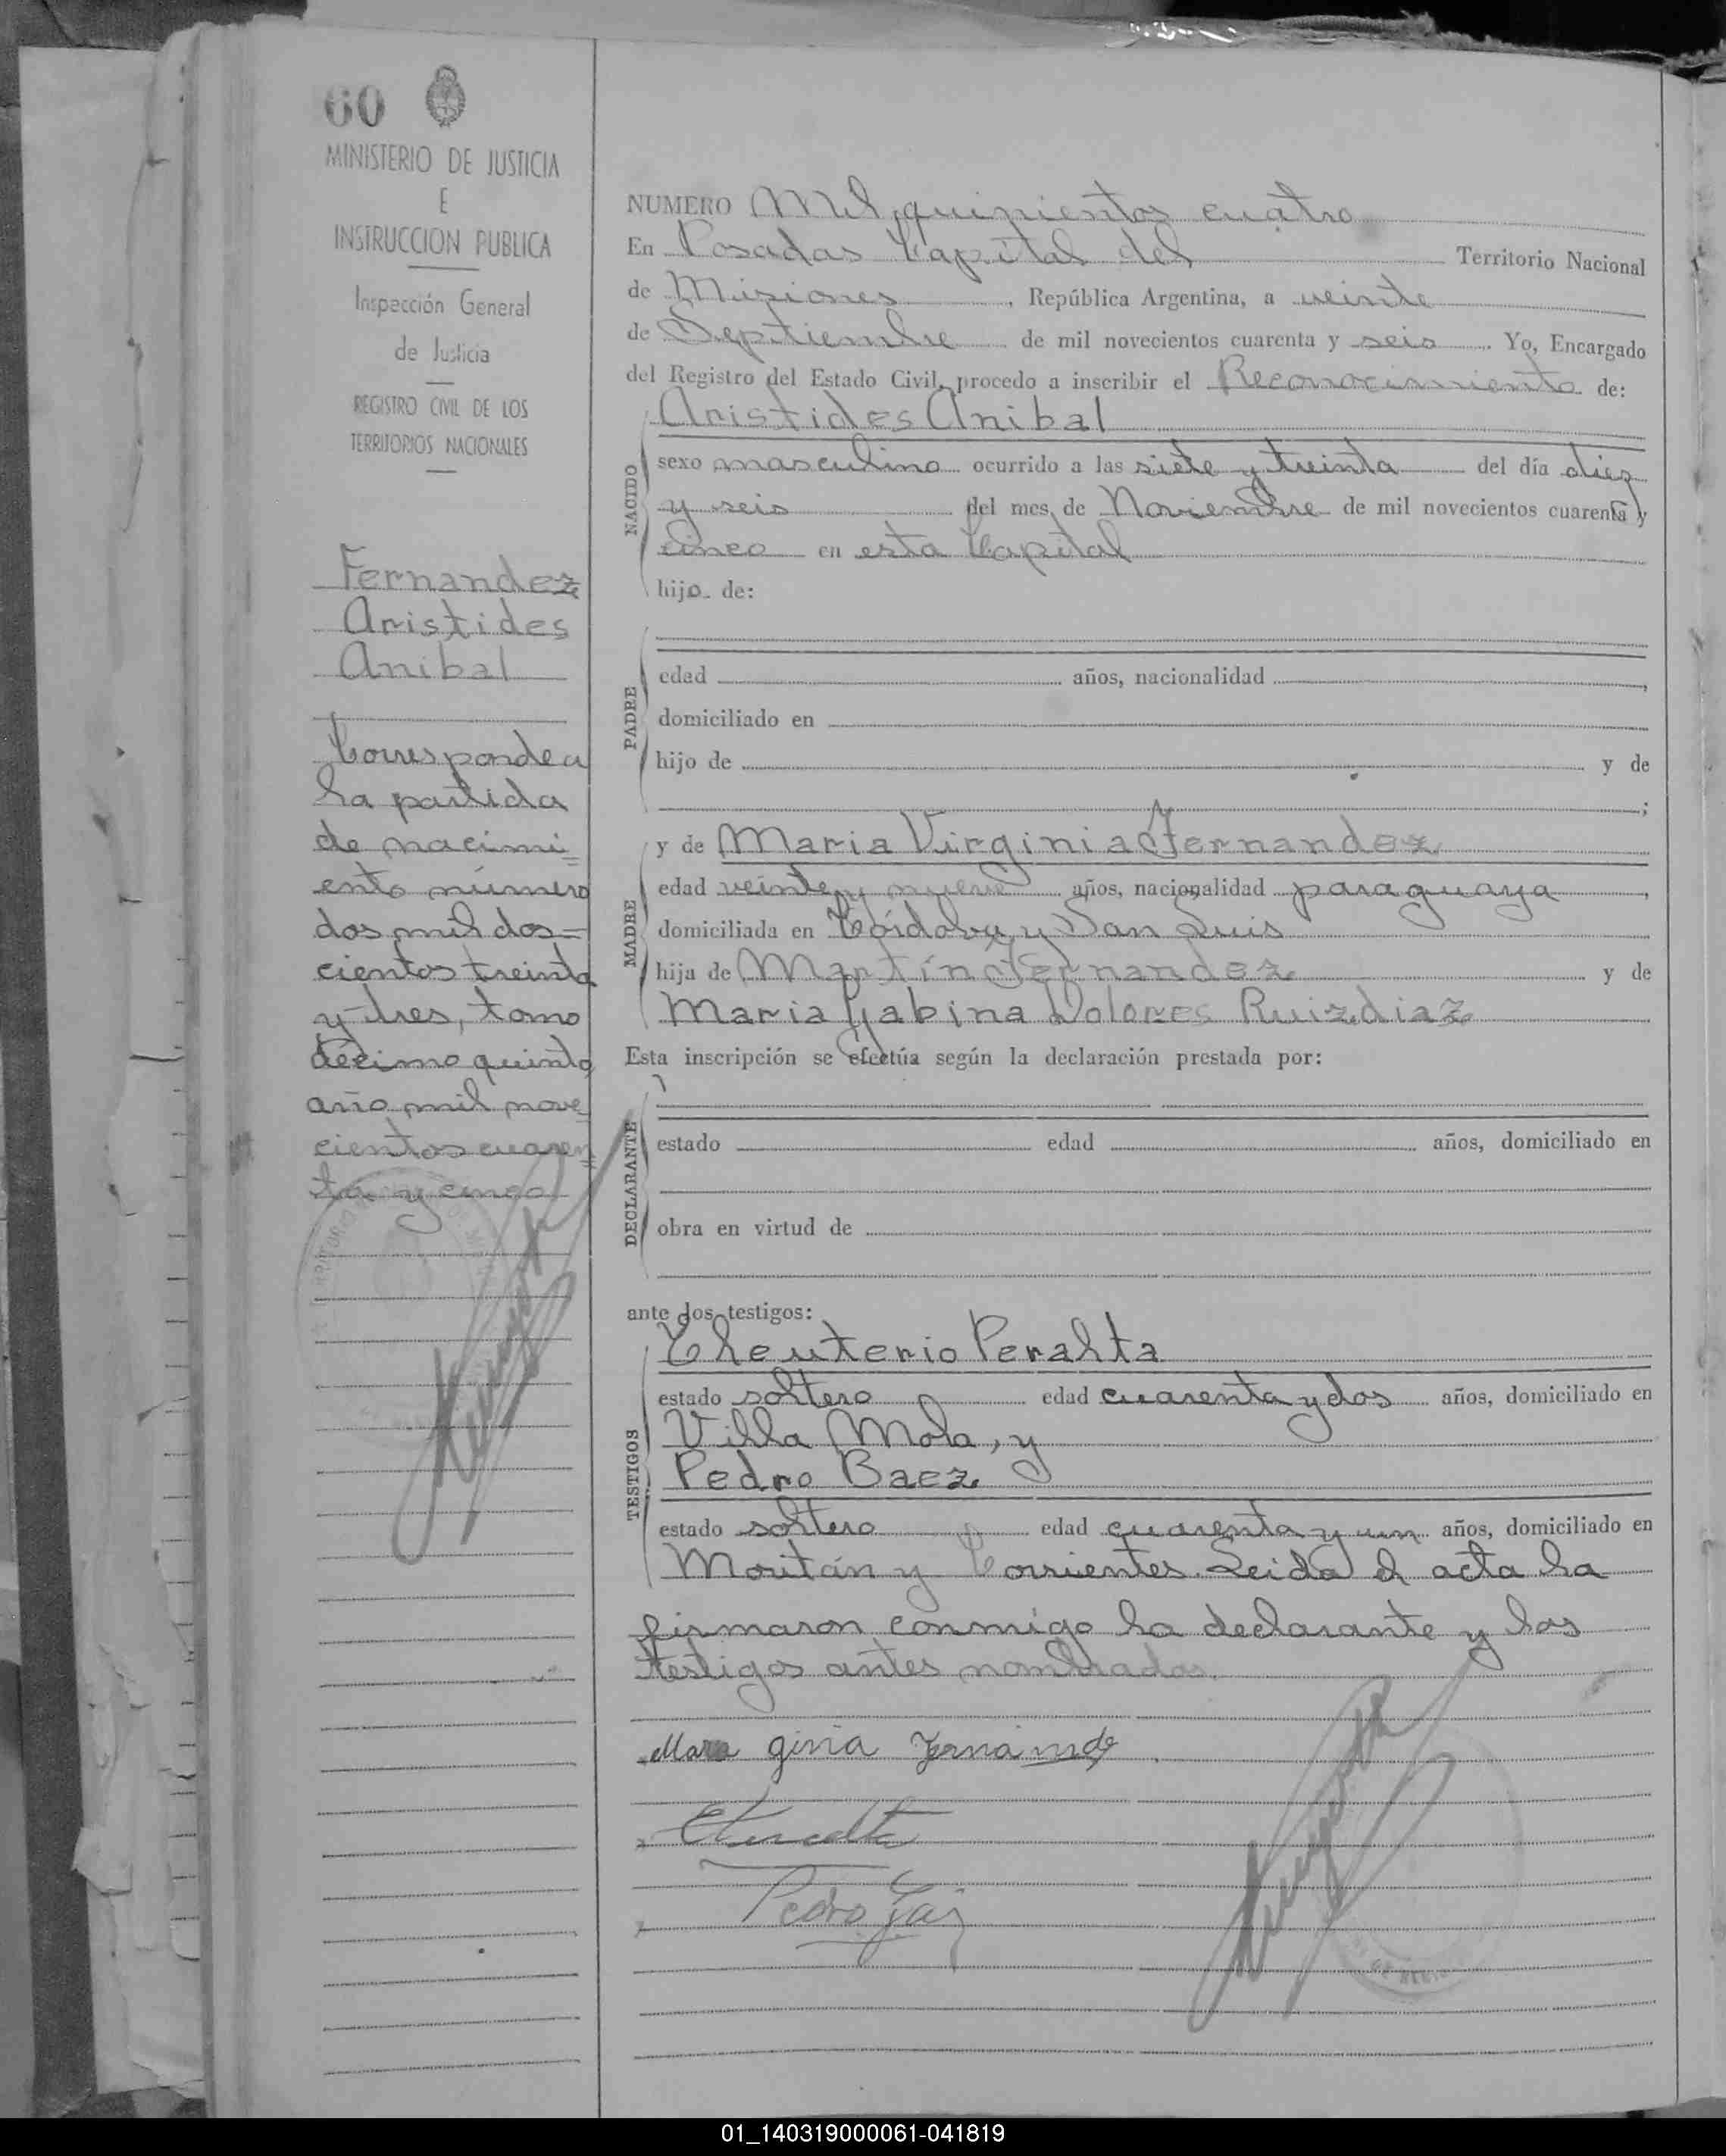 60
MINISTERIO DE JUSTICIA
E
INSTRUCCION PUBLICA
Inspección General
de Justicia
REGISTRO CIVIL DE LOS
TERRITORIOS NACIONALES
Fernandez
Aristides
Anibal
Corresponde a
la partida
de nacimi=
ento número
dos mil dos=
cientos treinta
y tres, tomo
décimo quinto,
año mil nove
cientos cuaren=
ta y cinco
NUMERO Mil quinientos cuatro
En Posadas Capital del Territorio Nacional
de Misiones, República Argentina, a veinte
de Septiembre de mil novecientos cuarenta y seis. Yo, Encargado
del Registro del Estado Civil, procedo a inscribir el Reconocimiento de:
NACIDO
Aristides Anibal
sexo masculino ocurrido a las siete y treinta del día diez
y seis del mes de Noviembre de mil novecientos cuarenta y
cinco en esta Capital
hijo de:
PADRE
edad años, nacionalidad ,
domiciliado en
hijo de y de
;
MADRE
y de Maria Virginia Fernandez
edad veinte y nueve años, nacionalidad paraguaya,
domiciliada en Córdoba y San Luis
hija de Martín Fernandez y de
Maria Gabina Dolores Ruizdiaz
Esta inscripción se efectúa según la declaración prestada por:
DECLARANTE
estado edad años, domiciliado en
obra en virtud de
ante dos testigos:
TESTIGOS
Eleuterio Peralta
estado soltero edad cuarenta y dos años, domiciliado en
Villa Mola, y
Pedro Baez
estado soltero edad cuarenta y un años, domiciliado en
Moritán y Corrientes. Leida el acta la
firmaron conmigo la declarante y los
testigos antes nombrados.
Mara ginia Fernandez
EPeralta
Pedro Baez
01_140319000061-041819